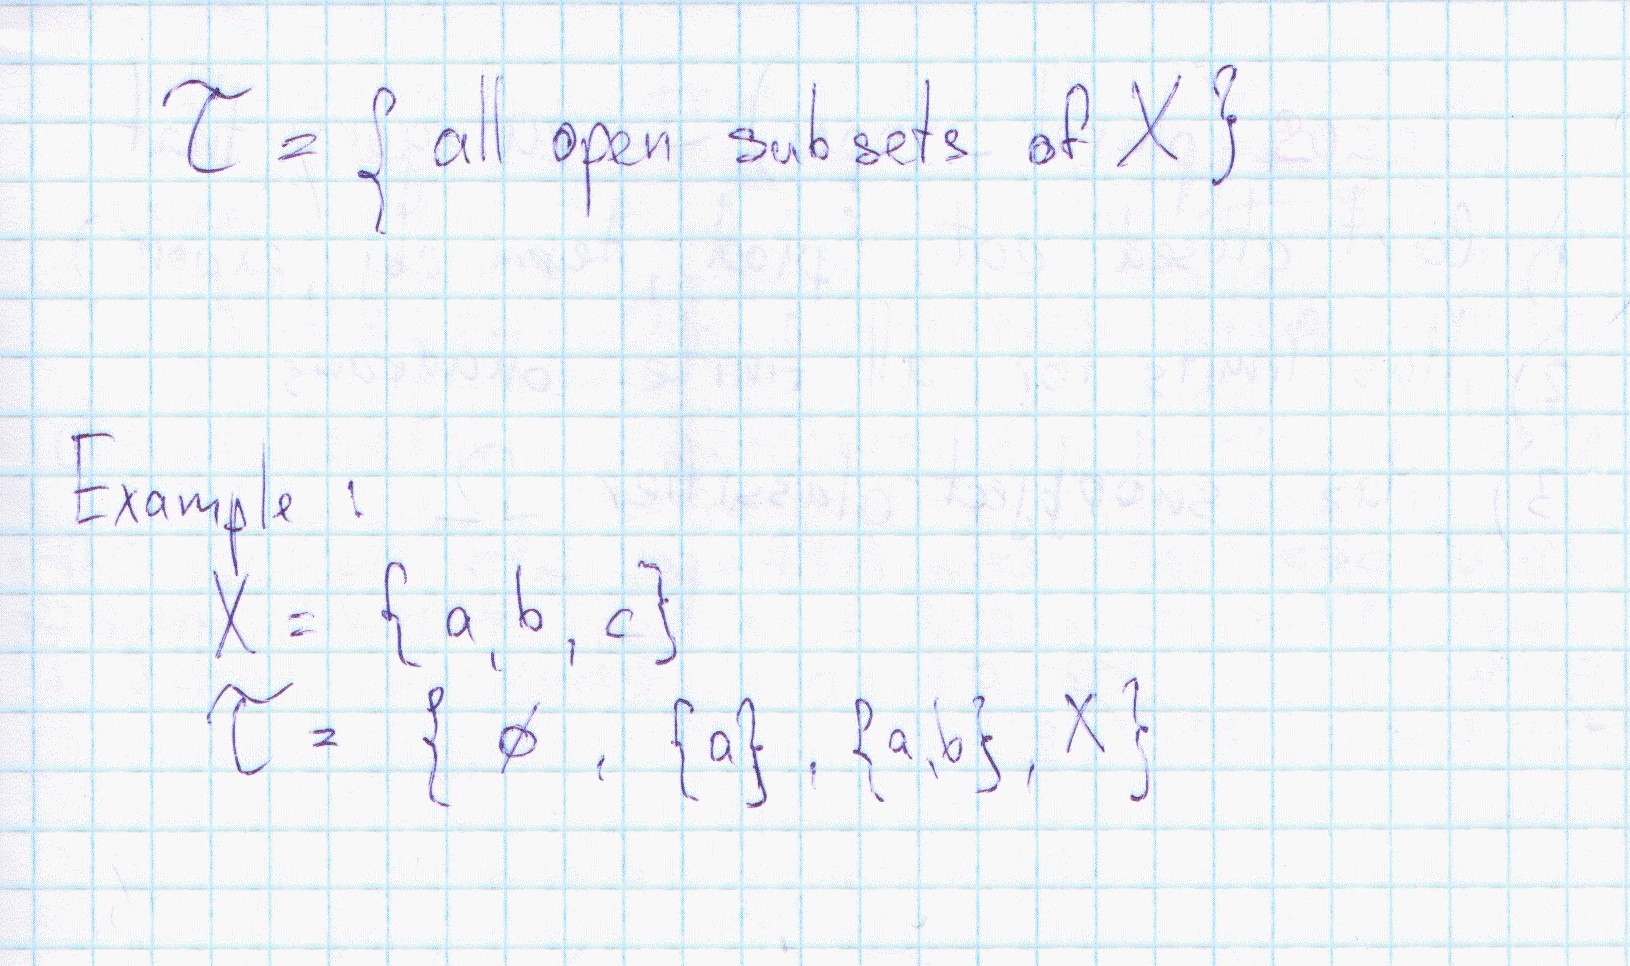 τ = { all open subsets of X }
Example :
X = { a, b, c }
τ = { ∅ , {a} , {a,b} , X }